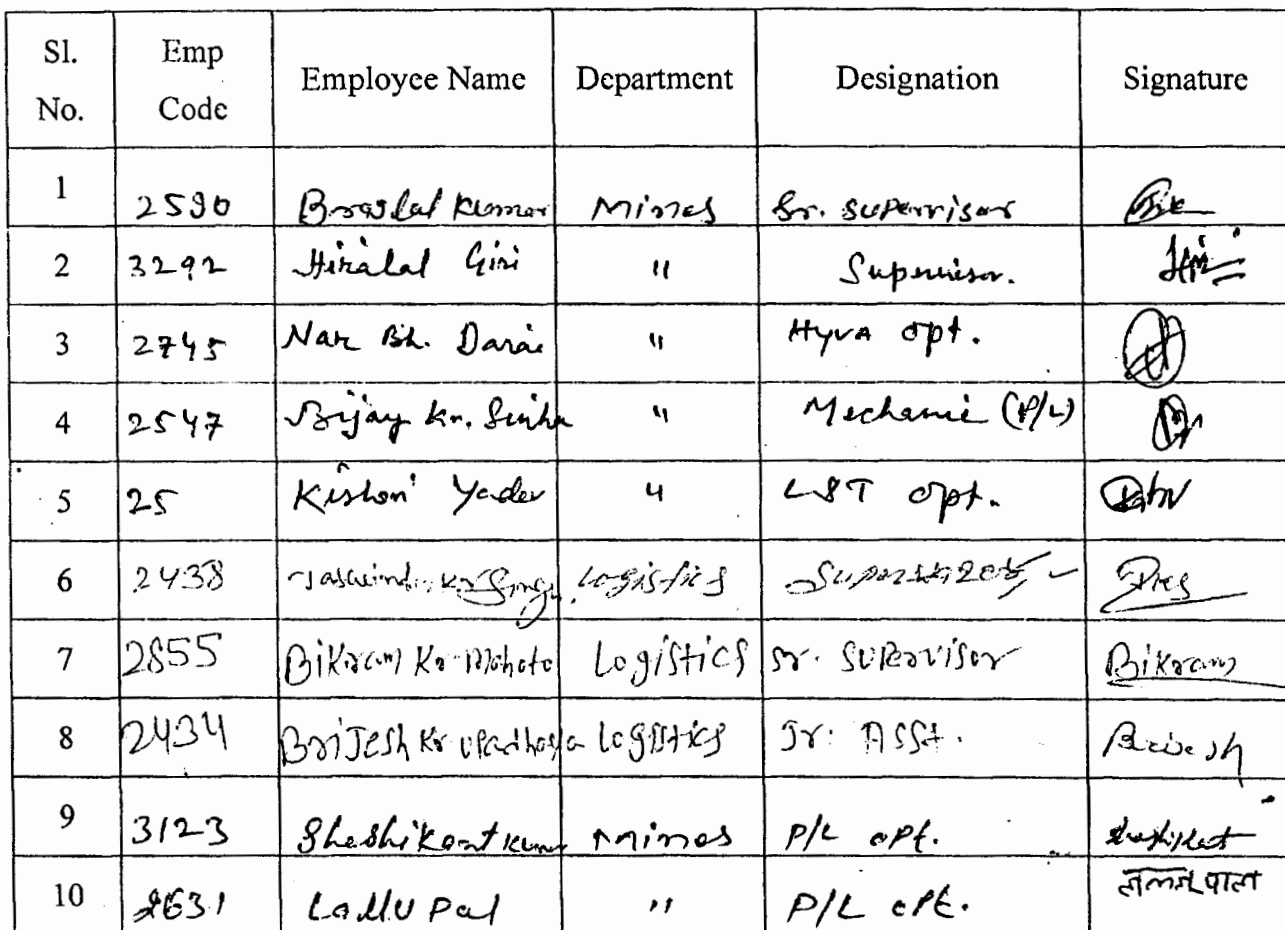 Sl. No. Emp Code Employee Name Department Designation Signature
1 2590 Brajlal Kumar Mines Sr. Supervisor
2 3292 Hiralal Giri " Supervisor.
3 2745 Nar Bh. Darai " Hyva opt.
4 2547 Bijay Kr. Sinha " Mechanic (P/L)
5 25 Kishori Yadav " opt.
6 2438 Kr Singh Logistics
7 2855 Bikram Kr Mahato Logistics Sr. Supervisor Bikram
8 2434 Brijesh Kr Upadhaya Logistics Jr. Asst. Brijesh
9 3123 Shashikant Kumar Mines P/L opt. Shashikant
10 2631 Lallu Pal " P/L opt. पाल